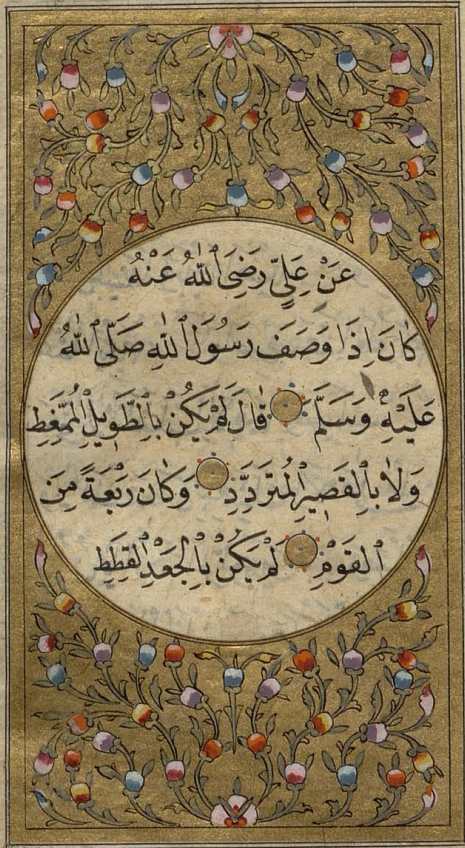 عَنْ عَلِيٍّ رَضِيَ ٱللّٰهُ عَنْهُ
كَانَ إِذَا وَصَفَ رَسُولَ ٱللّٰهِ صَلَّى ٱللّٰهُ
عَلَيْهِ وَسَلَّمَ قَالَ لَمْ يَكُنْ بِالطَّوِيلِ الْمُمَّغِطِ
وَلَا بِالْقَصِيرِ الْمُتَرَدِّدِ وَكَانَ رَبْعَةً مِنَ
الْقَوْمِ لَمْ يَكُنْ بِالْجَعْدِ الْقَطَطِ